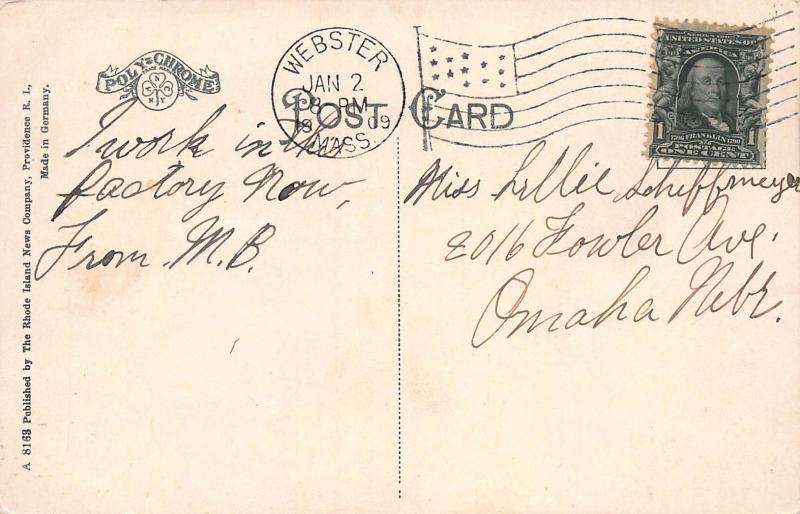 POLY-CHROME
WEBSTER
JAN 2
8 PM
1909
MASS.
POST CARD
SERIES 1902
UNITED STATES OF
AMERICA
1706 FRANKLIN 1790
1 POSTAGE 1
ONE CENT
I work in the
factory Now,
From M.B.
Miss Lillie Scheffmeyer
2016 Fowler Ave.
Omaha Nebr.
A 8163 Published by The Rhode Island News Company, Providence R. I.,
Made in Germany.